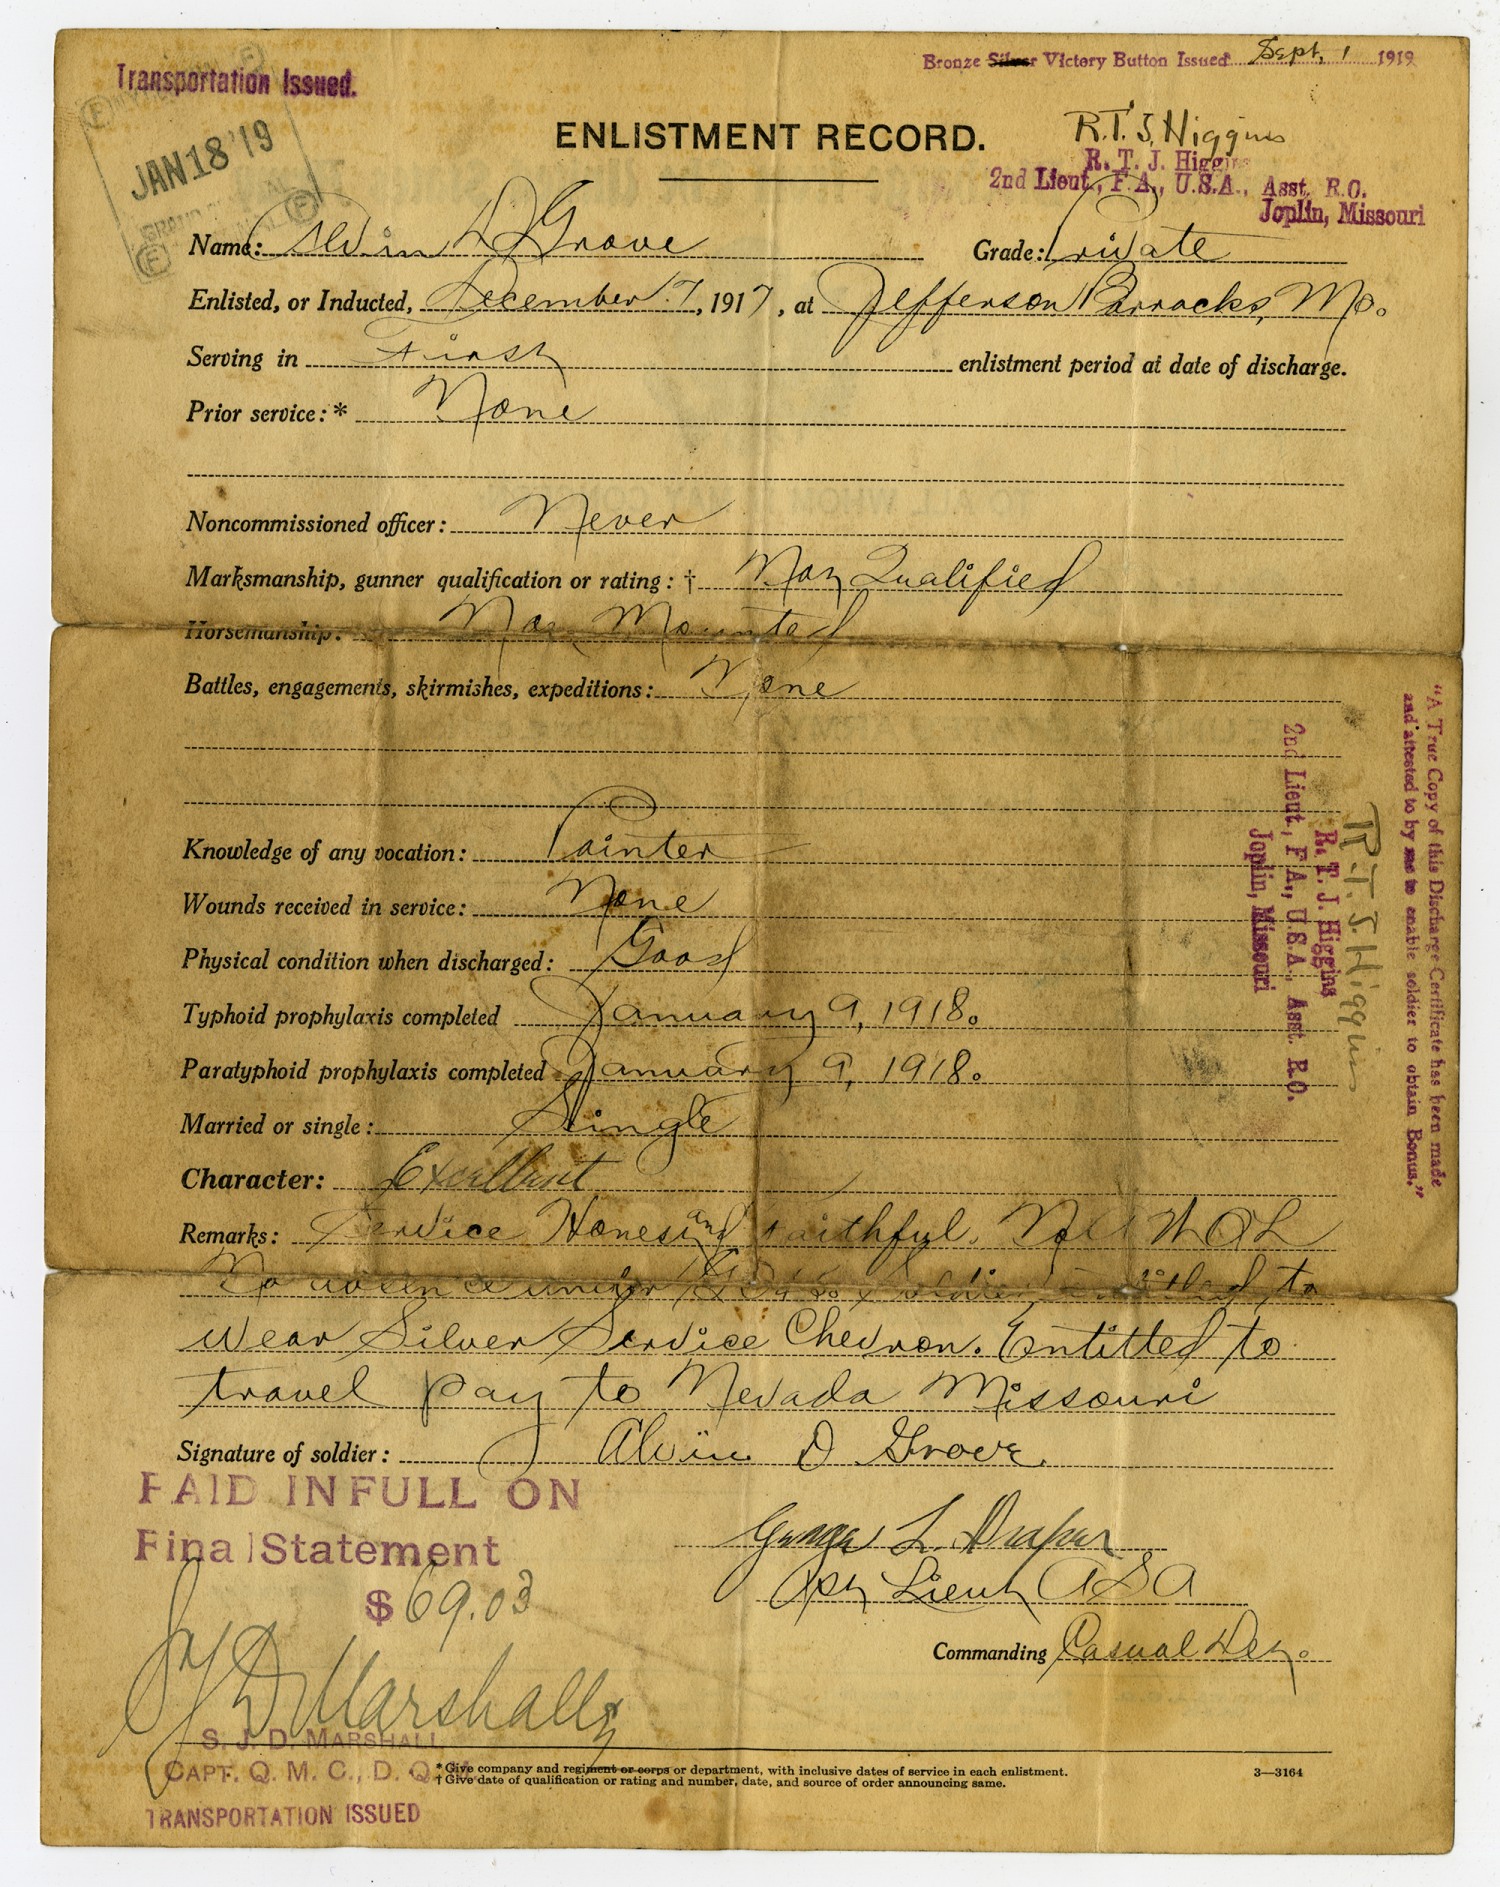 Transportation Issued.
Bronze Silver Victory Button Issued Sept. 1 1919
JAN 18 '19
ENLISTMENT RECORD.
R.T.J. Higgins
R. T. J. Higgins
2nd Lieut., F.A., U.S.A., Asst. R.O.
Joplin, Missouri
Name: Alvin D Grove Grade: Private
Enlisted, or Inducted, December 7, 1917, at Jefferson Barracks, Mo.
Serving in First enlistment period at date of discharge.
Prior service:* None
Noncommissioned officer: Never
Marksmanship, gunner qualification or rating: † Not Qualified
Horsemanship: Not Mounted
Battles, engagements, skirmishes, expeditions: None
Knowledge of any vocation: Painter
Wounds received in service: None
Physical condition when discharged: Good
Typhoid prophylaxis completed January 9, 1918.
Paratyphoid prophylaxis completed January 9, 1918.
Married or single: Single
Character: Excellent
Remarks: Service Honest and Faithful. No A W O L
No absence under soldier entitled to
wear Silver Service Chevron. Entitled to
travel pay to Nevada Missouri
Signature of soldier: Alvin D Grove
PAID IN FULL ON
Final Statement
$69.03
George L. Draper
1st Lieut ASA
Commanding Casual Det.
S J D Marshall
S. J. D. MARSHALL
CAPT. Q. M. C., D. Q. M.
TRANSPORTATION ISSUED
* Give company and regiment or corps or department, with inclusive dates of service in each enlistment.
† Give date of qualification or rating and number, date, and source of order announcing same.
3—3164
"A True Copy of this Discharge Certificate has been made
and attested to by me to enable soldier to obtain Bonus."
R.T.J. Higgins
R. T. J. Higgins
2nd Lieut., F.A., U.S.A., Asst. R.O.
Joplin, Missouri